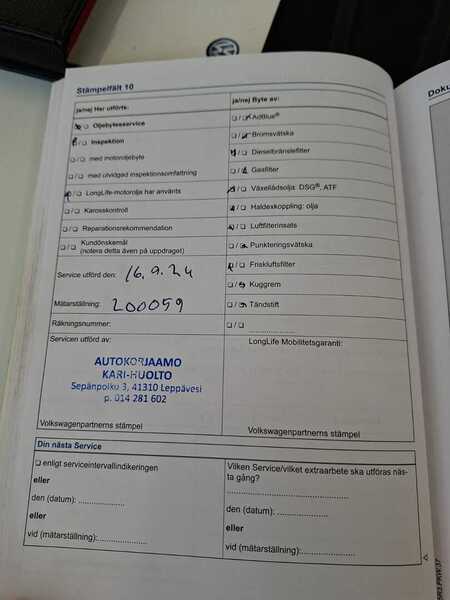 Stämpelfält 10
Doku
ja/nej Har utförts:
ja/nej Byte av:
□/□ Oljebytesservice
□/□ AdBlue®
□/□ Inspektion
□/□ Bromsvätska
□/□ med motoroljebyte
□/□ Dieselbränslefilter
□/□ med utvidgad inspektionsomfattning
□/□ Gasfilter
□/□ LongLife-motorolja har använts
□/□ Växellådsolja: DSG®, ATF
□/□ Karosskontroll
□/□ Haldexkoppling: olja
□/□ Reparationsrekommendation
□/□ Luftfilterinsats
□/□ Kundönskemål
(notera detta även på uppdraget)
□/□ Punkteringsvätska
□/□ Friskluftsfilter
Service utförd den: 16.9.24
□/□ Kuggrem
Mätarställning: 200059
□/□ Tändstift
Räkningsnummer:
□/□ ....................
Servicen utförd av:
LongLife Mobilitetsgaranti:
AUTOKORJAAMO
KARI-HUOLTO
Sepänpolku 3, 41310 Leppävesi
p. 014 281 602
Volkswagenpartnerns stämpel
Volkswagenpartnerns stämpel
Din nästa Service
□ enligt serviceintervallindikeringen
eller
den (datum): ....................
eller
vid (mätarställning):....................
Vilken Service/vilket extraarbete ska utföras näs-
ta gång?
........................................
den (datum): ....................
eller
vid (mätarställning):....................